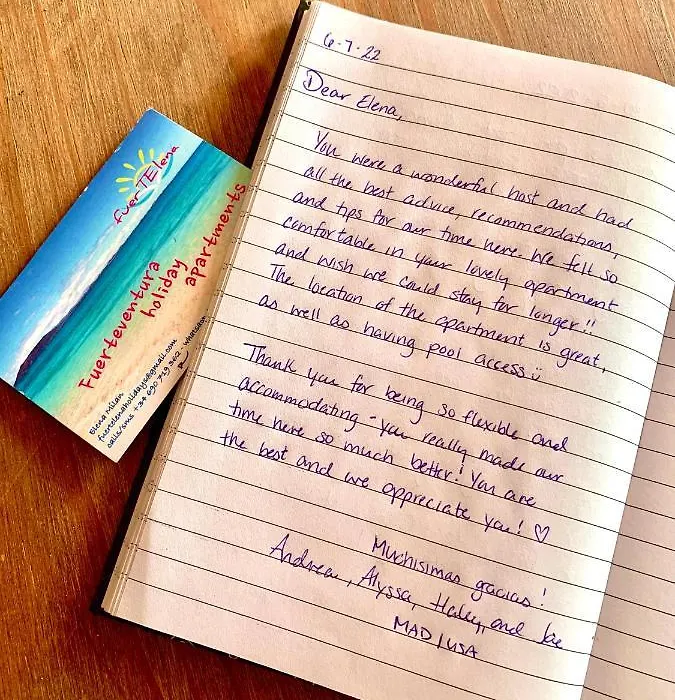 6-7-22
Dear Elena,
You were a wonderful host and had
all the best advice, recommendations,
and tips for our time here. We felt so
comfortable in your lovely apartment
and wish we could stay for longer!!
The location of the apartment is great,
as well as having pool access ü
Thank you for being so flexible and
accommodating - you really made our
time here so much better! You are
the best and we appreciate you! ♡
Muchisimas gracias!
Andrea, Alyssa, Haley, and Joe
MAD/USA
fuerTElena
Fuerteventura
holiday
apartments
Elena Milan
fuerelenaholidays@gmail.com
calls/sms +34 690 719 362 whatsapp